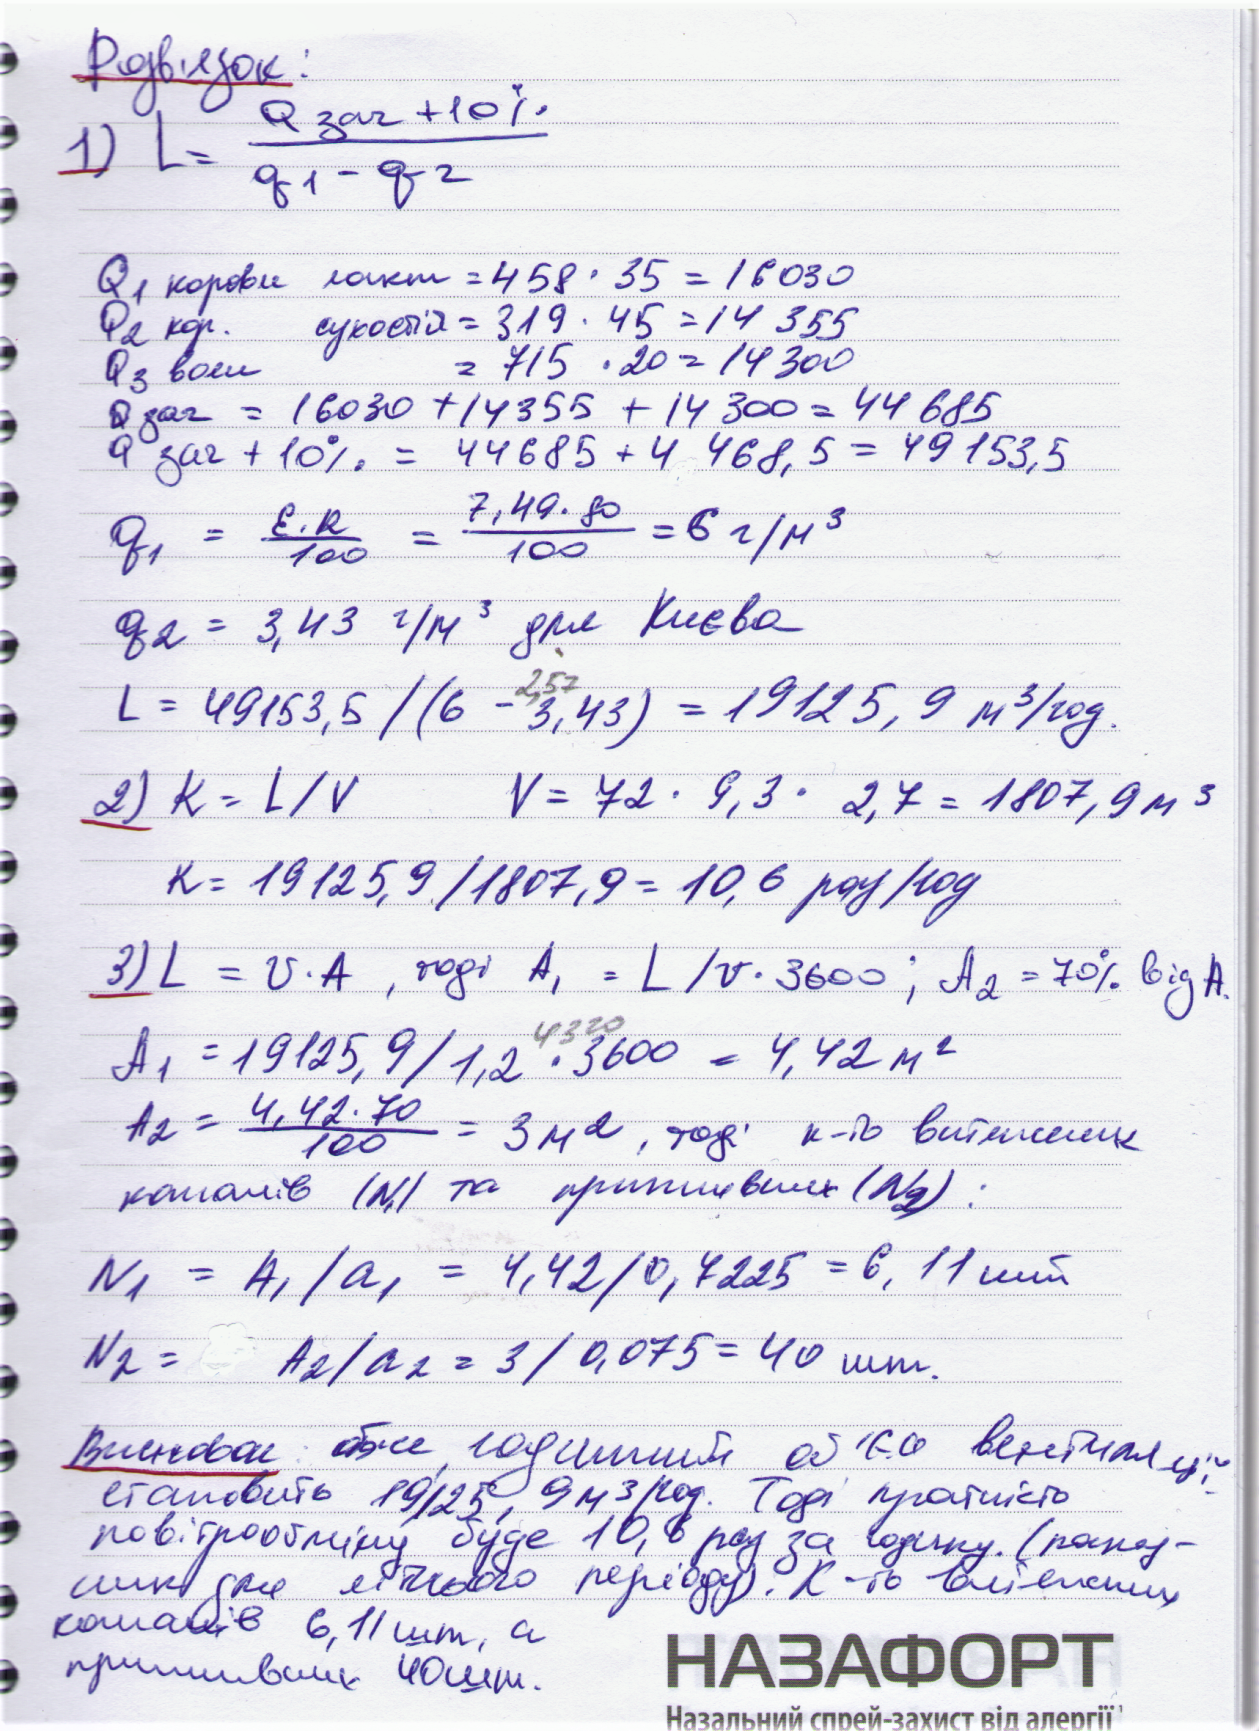 Розв'язок:
1) L = (Q заг + 10%) / (q1 - q2)
Q1 корови лакт = 458 · 35 = 16030
Q2 кор. сухостій = 319 · 45 = 14 355
Q3 воли = 715 · 20 = 14300
Q заг = 16030 + 14355 + 14300 = 44685
Q заг + 10% = 44685 + 4 468,5 = 49153,5
q1 = E·R/100 = 7,49·80/100 = 6 г/м³
q2 = 3,43 г/м³ для Києва
2,57
L = 49153,5 / (6 - 3,43) = 19125,9 м³/год.
2) K = L/V V = 72 · 9,3 · 2,7 = 1807,9 м³
K = 19125,9 / 1807,9 = 10,6 раз/год
3) L = v·A, тоді A1 = L/v·3600; A2 = 70% від A.
4320
A1 = 19125,9 / 1,2 · 3600 = 4,42 м²
A2 = 4,42·70/100 = 3 м², тоді к-ть витяжних
каналів (N1) та припливних (N2):
N1 = A1/a1 = 4,42/0,7225 = 6,11 шт
N2 = A2/a2 = 3/0,075 = 40 шт.
Висновок: отже, годинний об'єм вентиляції
становить 19125,9 м³/год. Тоді кратність
повітрообміну буде 10,6 раз за годину. (показ-
ник для літнього періоду). К-ть витяжних
каналів 6,11 шт, а
припливних 40 шт.
НАЗАФОРТ
Назальний спрей-захист від алергії